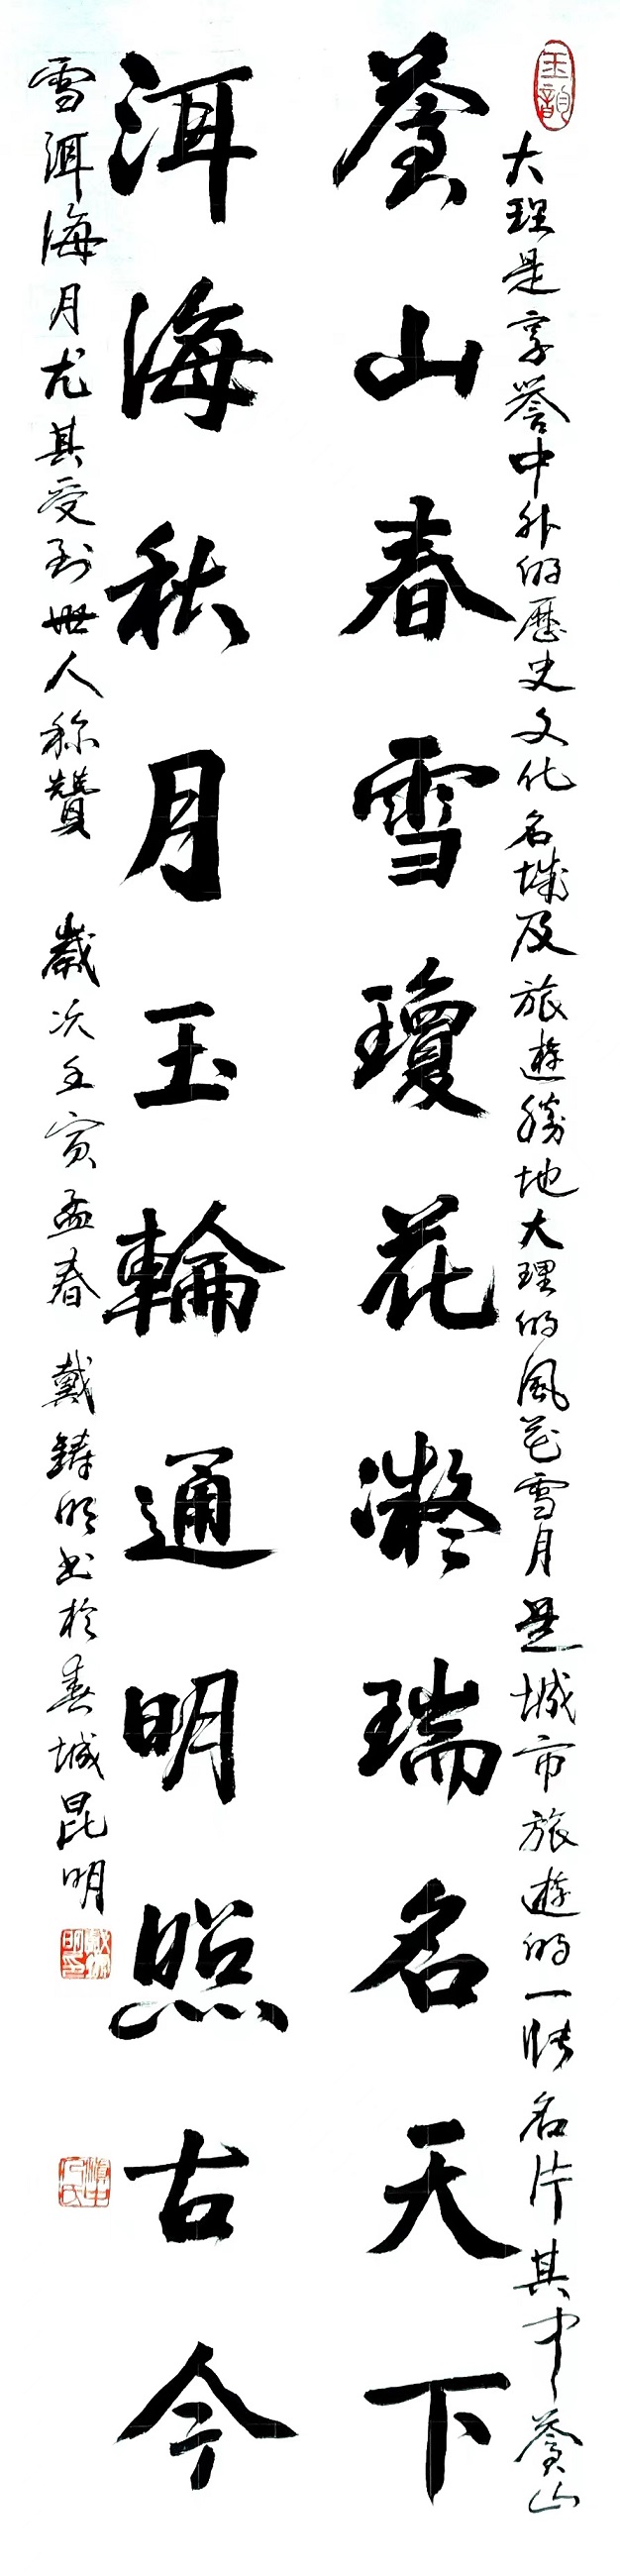 大理是享譽中外的歷史文化名城及旅遊勝地大理的風花雪月是城市旅遊的一張名片其中蒼山
蒼山春雪瓊花凝瑞名天下
洱海秋月玉輪通明照古今
雪洱海月尤其受到世人称贊 歲次壬寅孟春 戴鑄明书於春城昆明